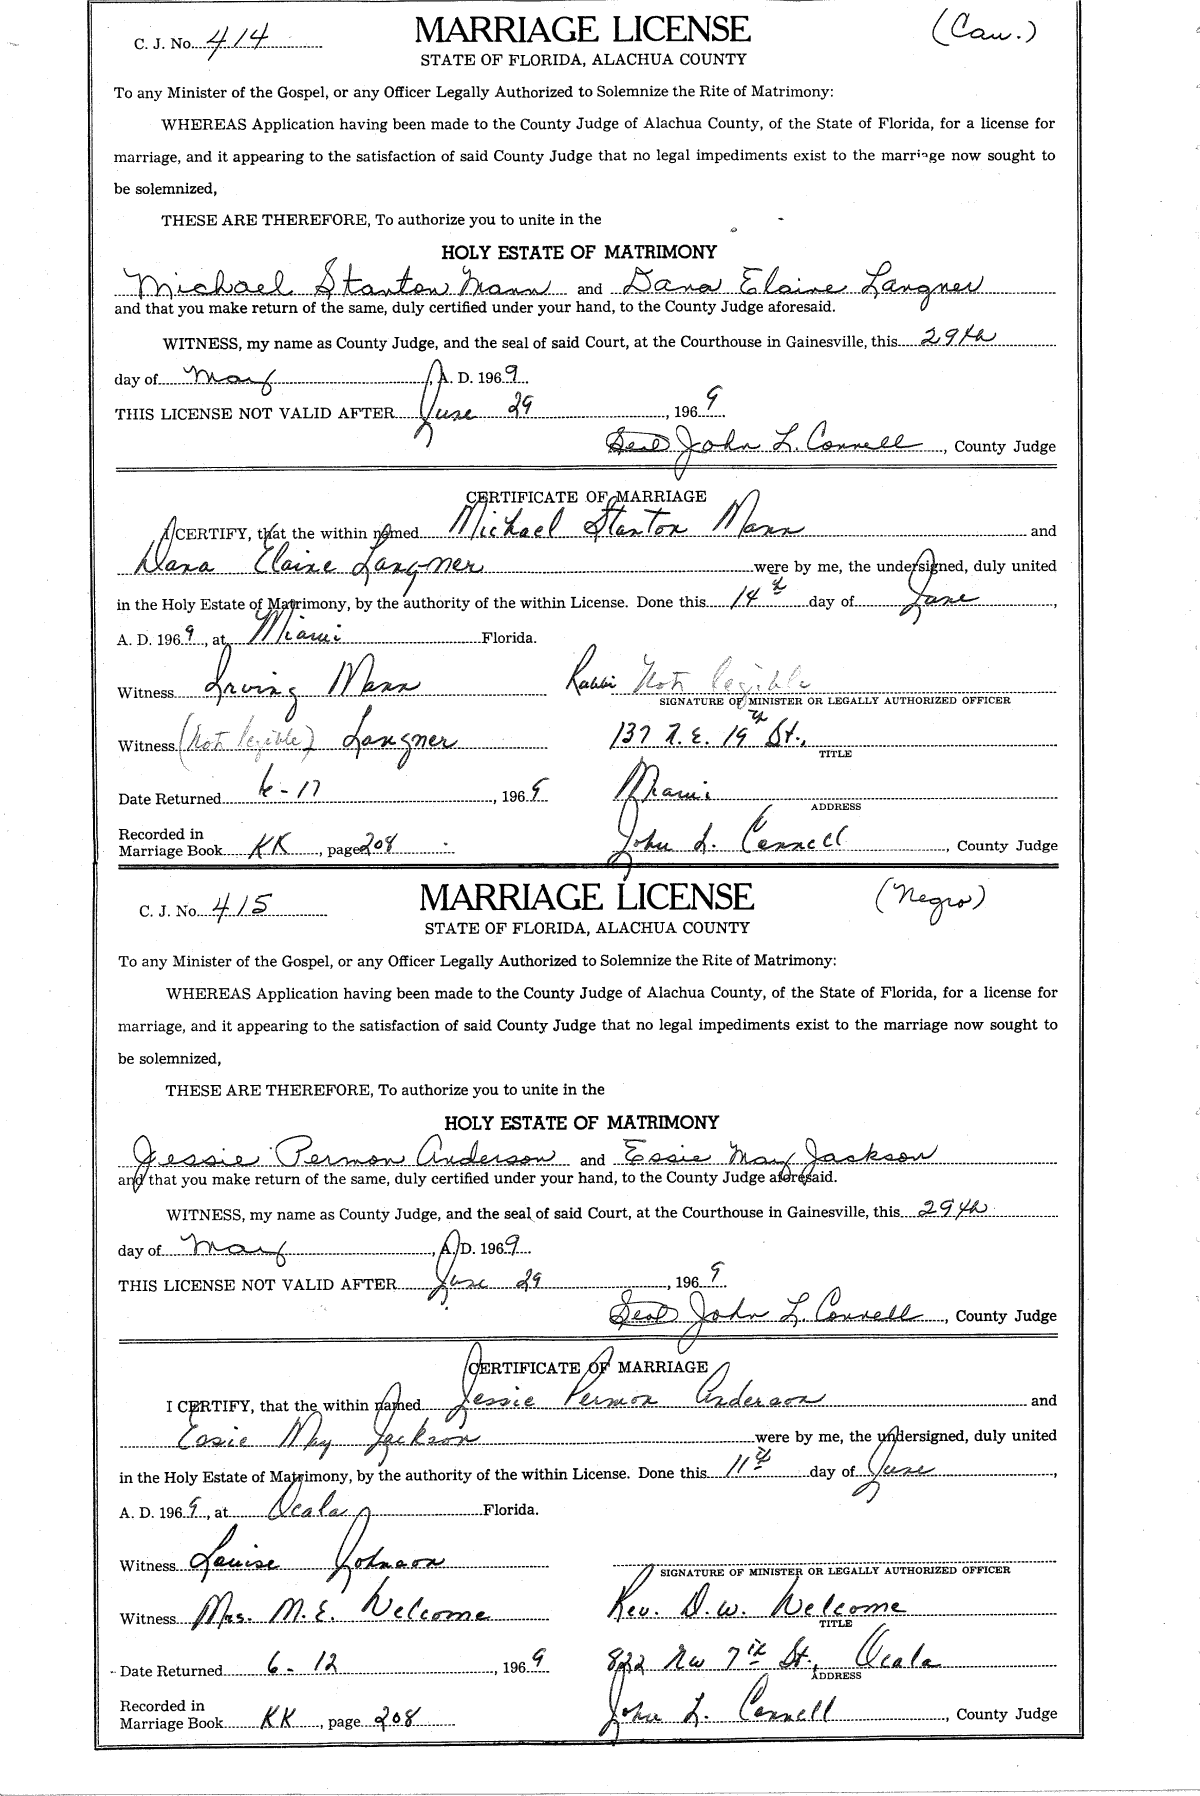 C. J. No. 414
MARRIAGE LICENSE
(Cau.)
STATE OF FLORIDA, ALACHUA COUNTY
To any Minister of the Gospel, or any Officer Legally Authorized to Solemnize the Rite of Matrimony:
WHEREAS Application having been made to the County Judge of Alachua County, of the State of Florida, for a license for
marriage, and it appearing to the satisfaction of said County Judge that no legal impediments exist to the marriage now sought to
be solemnized,
THESE ARE THEREFORE, To authorize you to unite in the
HOLY ESTATE OF MATRIMONY
Michael Stanton Mann and Dana Elaine Langner
and that you make return of the same, duly certified under your hand, to the County Judge aforesaid.
WITNESS, my name as County Judge, and the seal of said Court, at the Courthouse in Gainesville, this 29th
day of May, A. D. 1969
THIS LICENSE NOT VALID AFTER June 29, 1969
Seal John L. Connell, County Judge
CERTIFICATE OF MARRIAGE
I CERTIFY, that the within named Michael Stanton Mann and
Dana Elaine Langner were by me, the undersigned, duly united
in the Holy Estate of Matrimony, by the authority of the within License. Done this 14th day of June,
A. D. 1969, at Miami Florida.
Witness Irving Mann Rabbi Not legible
SIGNATURE OF MINISTER OR LEGALLY AUTHORIZED OFFICER
Witness (Not legible) Langner 137 N. E. 19th St.,
TITLE
Date Returned 6-17, 1969 Miami
ADDRESS
Recorded in
Marriage Book KK, page 208 John L. Connell, County Judge
C. J. No. 415
MARRIAGE LICENSE
(Negro)
STATE OF FLORIDA, ALACHUA COUNTY
To any Minister of the Gospel, or any Officer Legally Authorized to Solemnize the Rite of Matrimony:
WHEREAS Application having been made to the County Judge of Alachua County, of the State of Florida, for a license for
marriage, and it appearing to the satisfaction of said County Judge that no legal impediments exist to the marriage now sought to
be solemnized,
THESE ARE THEREFORE, To authorize you to unite in the
HOLY ESTATE OF MATRIMONY
Jessie Permon Anderson and Essie May Jackson
and that you make return of the same, duly certified under your hand, to the County Judge aforesaid.
WITNESS, my name as County Judge, and the seal of said Court, at the Courthouse in Gainesville, this 29th
day of May, A. D. 1969
THIS LICENSE NOT VALID AFTER June 29, 1969
Seal John L. Connell, County Judge
CERTIFICATE OF MARRIAGE
I CERTIFY, that the within named Jessie Permon Anderson and
Essie May Jackson were by me, the undersigned, duly united
in the Holy Estate of Matrimony, by the authority of the within License. Done this 11th day of June,
A. D. 1969, at Ocala Florida.
Witness Louise Johnson
SIGNATURE OF MINISTER OR LEGALLY AUTHORIZED OFFICER
Witness Mrs. M. E. Welcome Rev. D. W. Welcome
TITLE
Date Returned 6-12, 1969 822 NW 7th St., Ocala
ADDRESS
Recorded in
Marriage Book KK, page 208 John L. Connell, County Judge